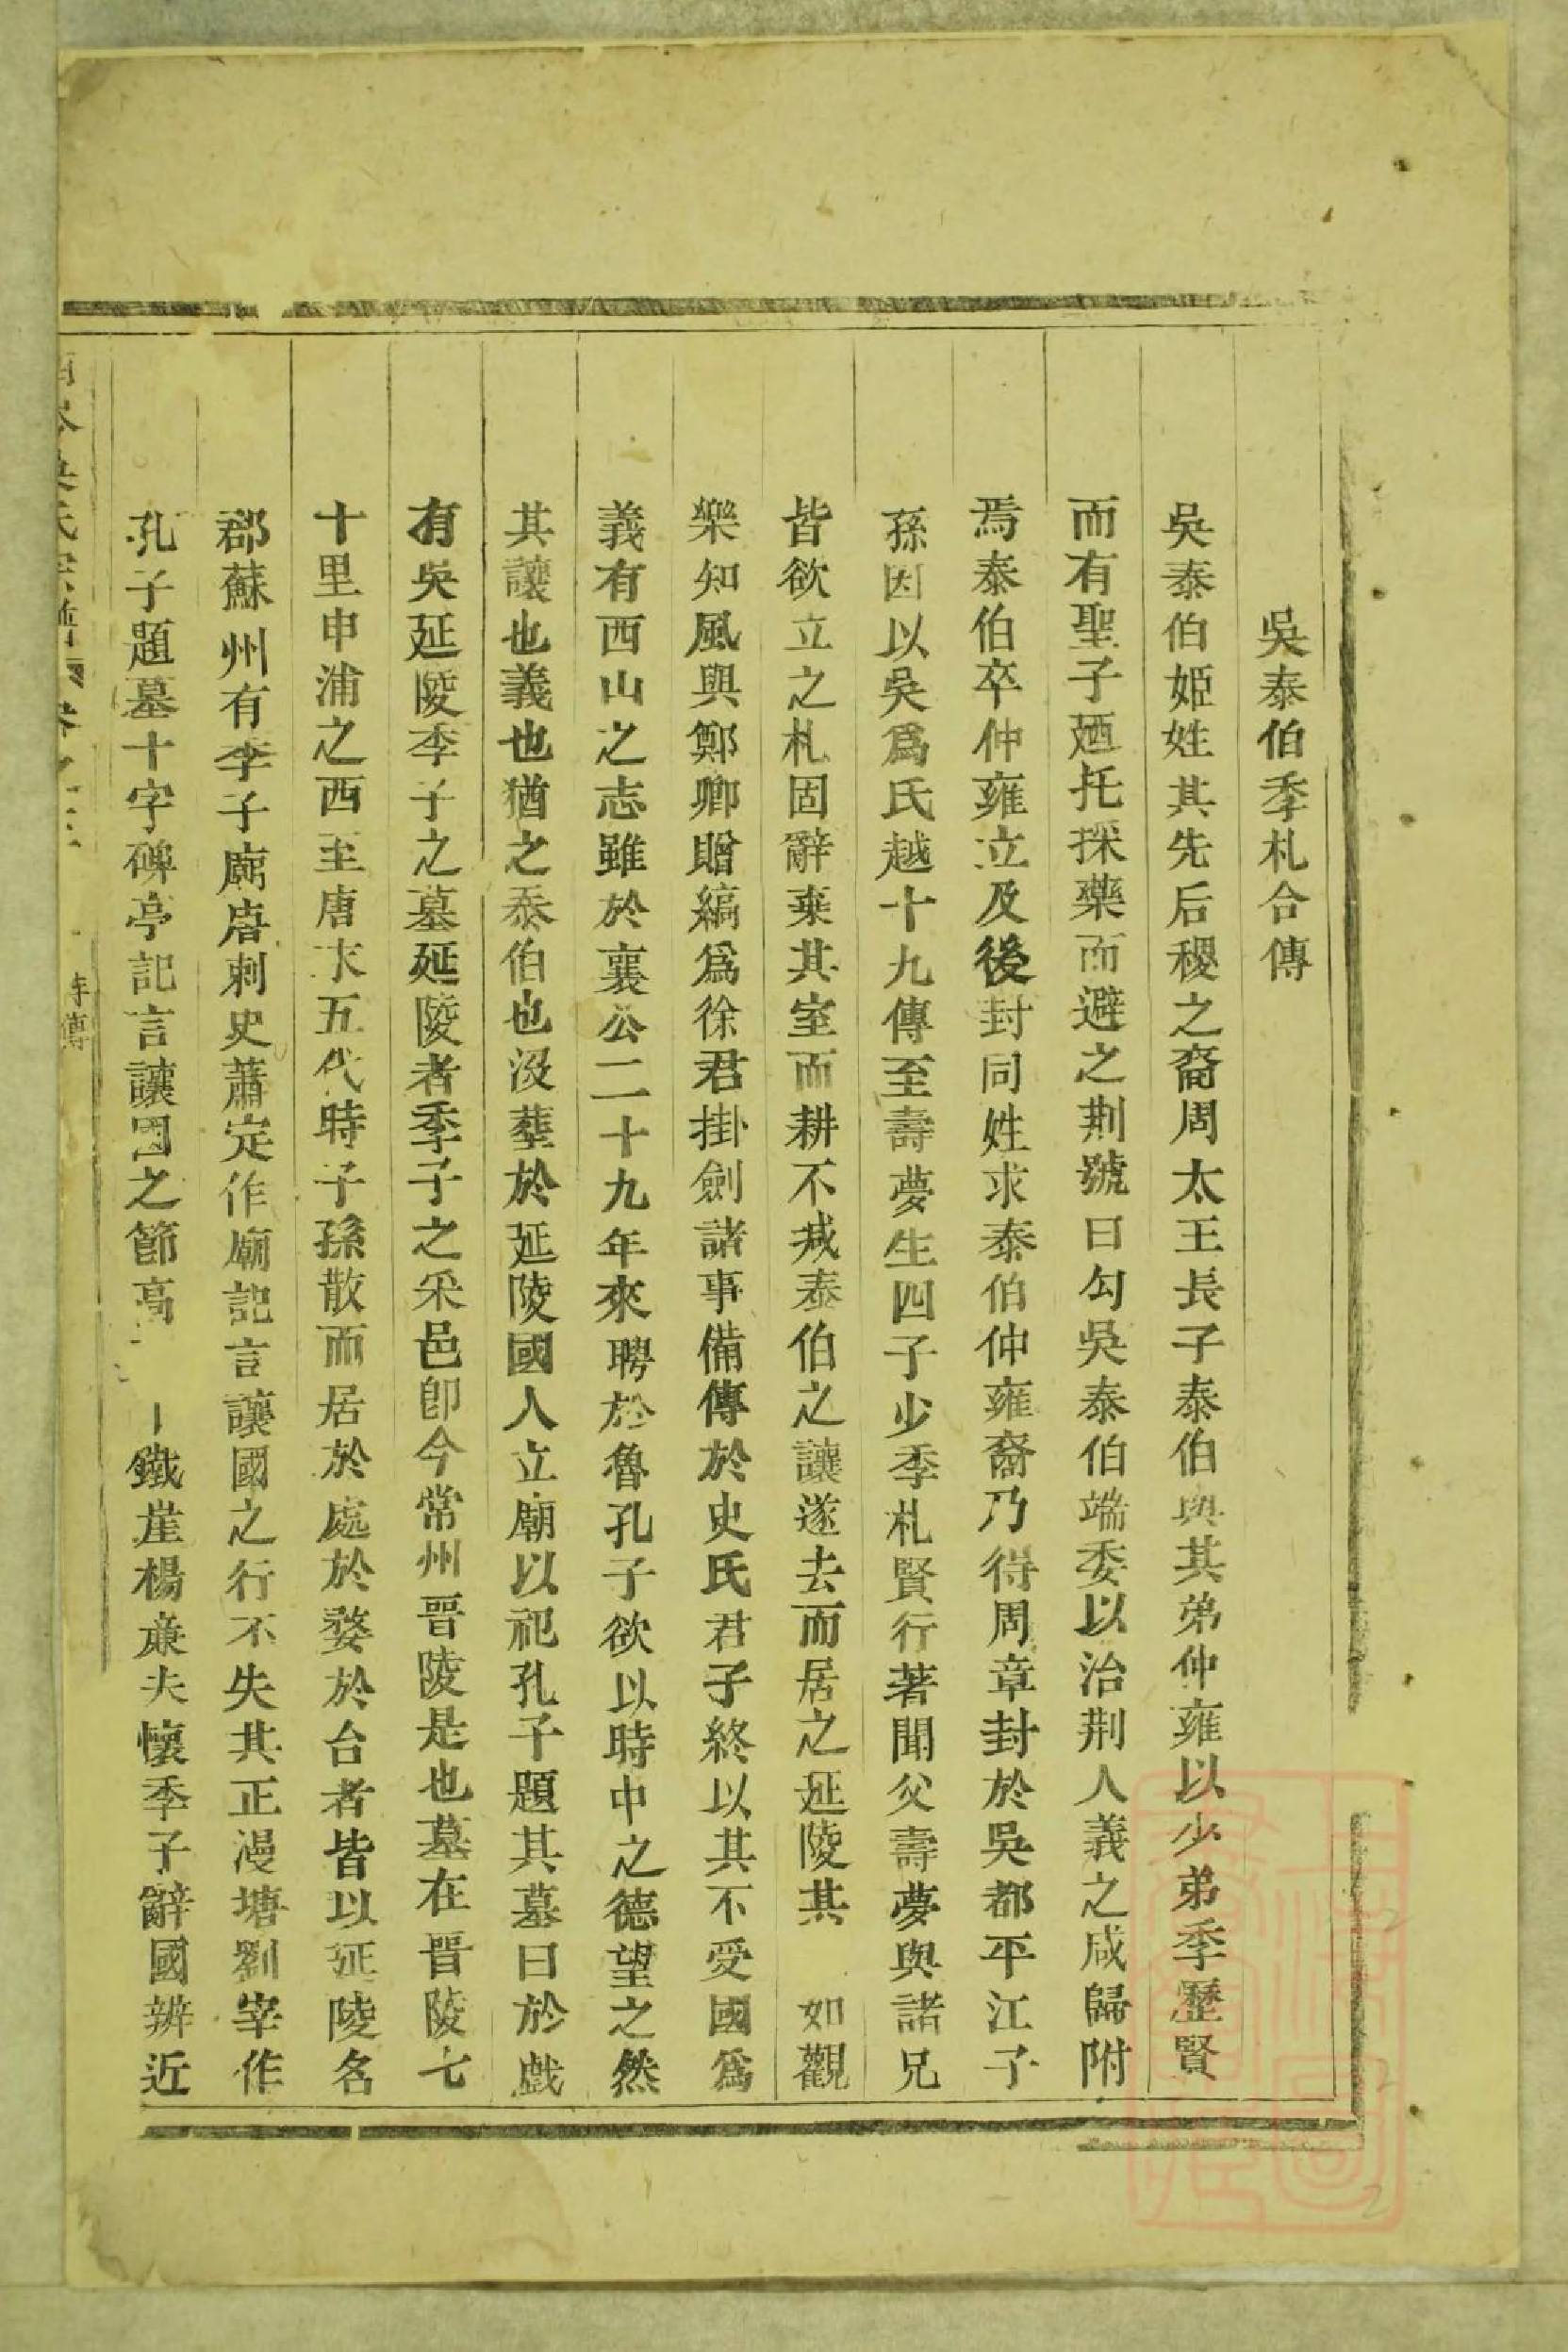 吳泰伯季札合傳
吳泰伯姬姓其先后稷之裔周太王長子泰伯與其弟仲雍以少弟季歷賢
而有聖子廼托採藥而避之荆號曰勾吳泰伯端委以治荆人義之咸歸附
焉泰伯卒仲雍立及後封同姓求泰伯仲雍裔乃得周章封於吳都平江子
孫因以吳爲氏越十九傳至壽夢生四子少季札賢行著聞父壽夢與諸兄
皆欲立之札固辭棄其室而耕不减泰伯之讓遂去而居之延陵其 如觀
樂知風與鄭卿贈縞爲徐君掛劍諸事備傳於史氏君子終以其不受國爲
義有西山之志雖於襄公二十九年來聘於魯孔子欲以時中之德望之然
其讓也義也猶之泰伯也没葬於延陵國人立廟以祀孔子題其墓曰於戲
有吳延陵季子之墓延陵者季子之采邑卽今常州晋陵是也墓在晋陵七
十里申浦之西至唐末五代時子孫散而居於處於婺於台者皆以延陵名
郡蘇州有季子廟唐刺史蕭定作廟記言讓國之行不失其正漫塘劉宰作
孔子題墓十字碑亭記言讓國之節高 鐵崖楊亷夫懷季子辭國辨近
吳氏宗譜 卷之
傳